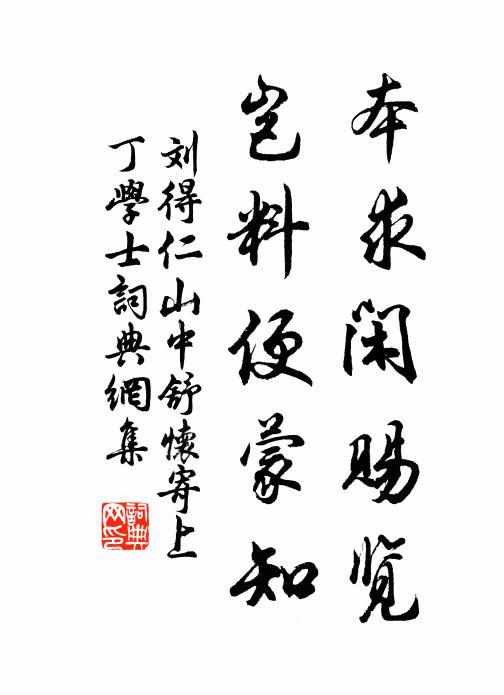 本求闲赐览
岂料便蒙知
刘得仁山中舒怀寄上
丁學士詞典網集
詞典
网印